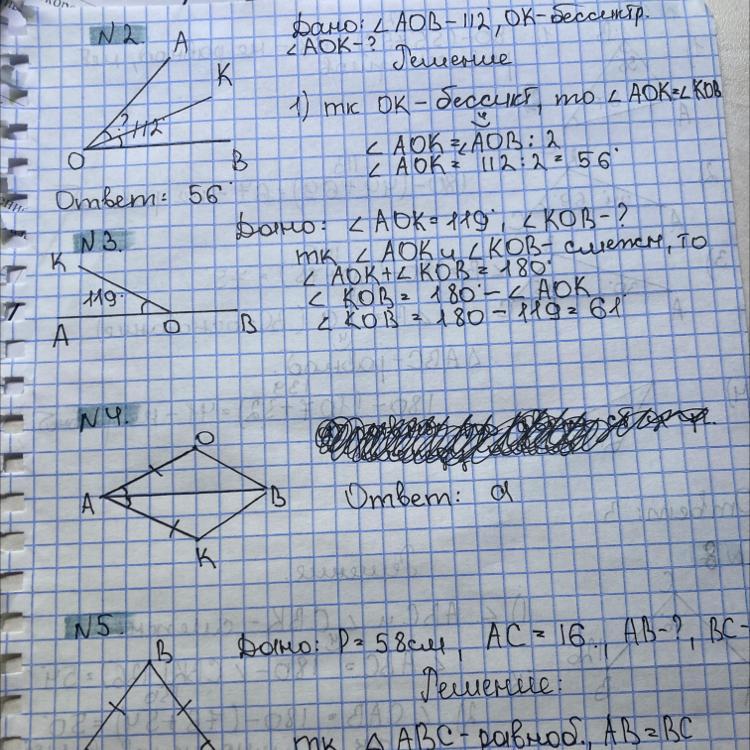 N2.
Дано: ∠AOB - 112°, OK - бессектр.
∠AOK - ?
Решение
A
K
? 112
O
B
1) тк OK - бессикт, то ∠AOK = ∠KOB
∠AOK = ∠AOB : 2
∠AOK = 112 : 2 = 56°
Ответ: 56°
N3.
Дано: ∠AOK = 119°, ∠KOB - ?
тк ∠AOK и ∠KOB - смежн, то
∠AOK + ∠KOB = 180°
∠KOB = 180° - ∠AOK
∠KOB = 180 - 119 = 61°
K
119°
A
O
B
N4.
O
A
B
K
Ответ: а
N5.
Дано: P = 58 см, AC = 16, AB - ?, BC -
Решение:
B
тк △ABC - равноб., AB = BC